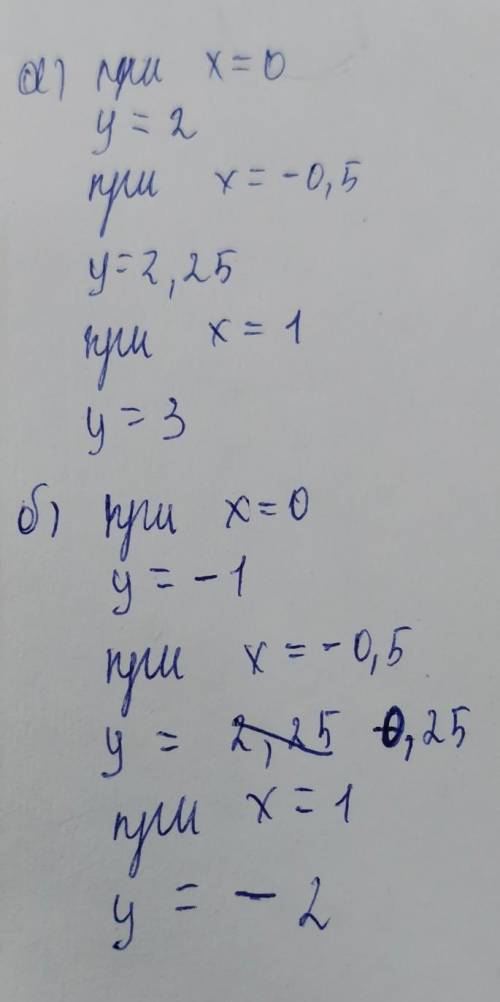 а) при x = 0
y = 2
при x = -0,5
y = 2,25
при x = 1
y = 3
б) при x = 0
y = -1
при x = -0,5
y = 2,25 -0,25
при x = 1
y = -2